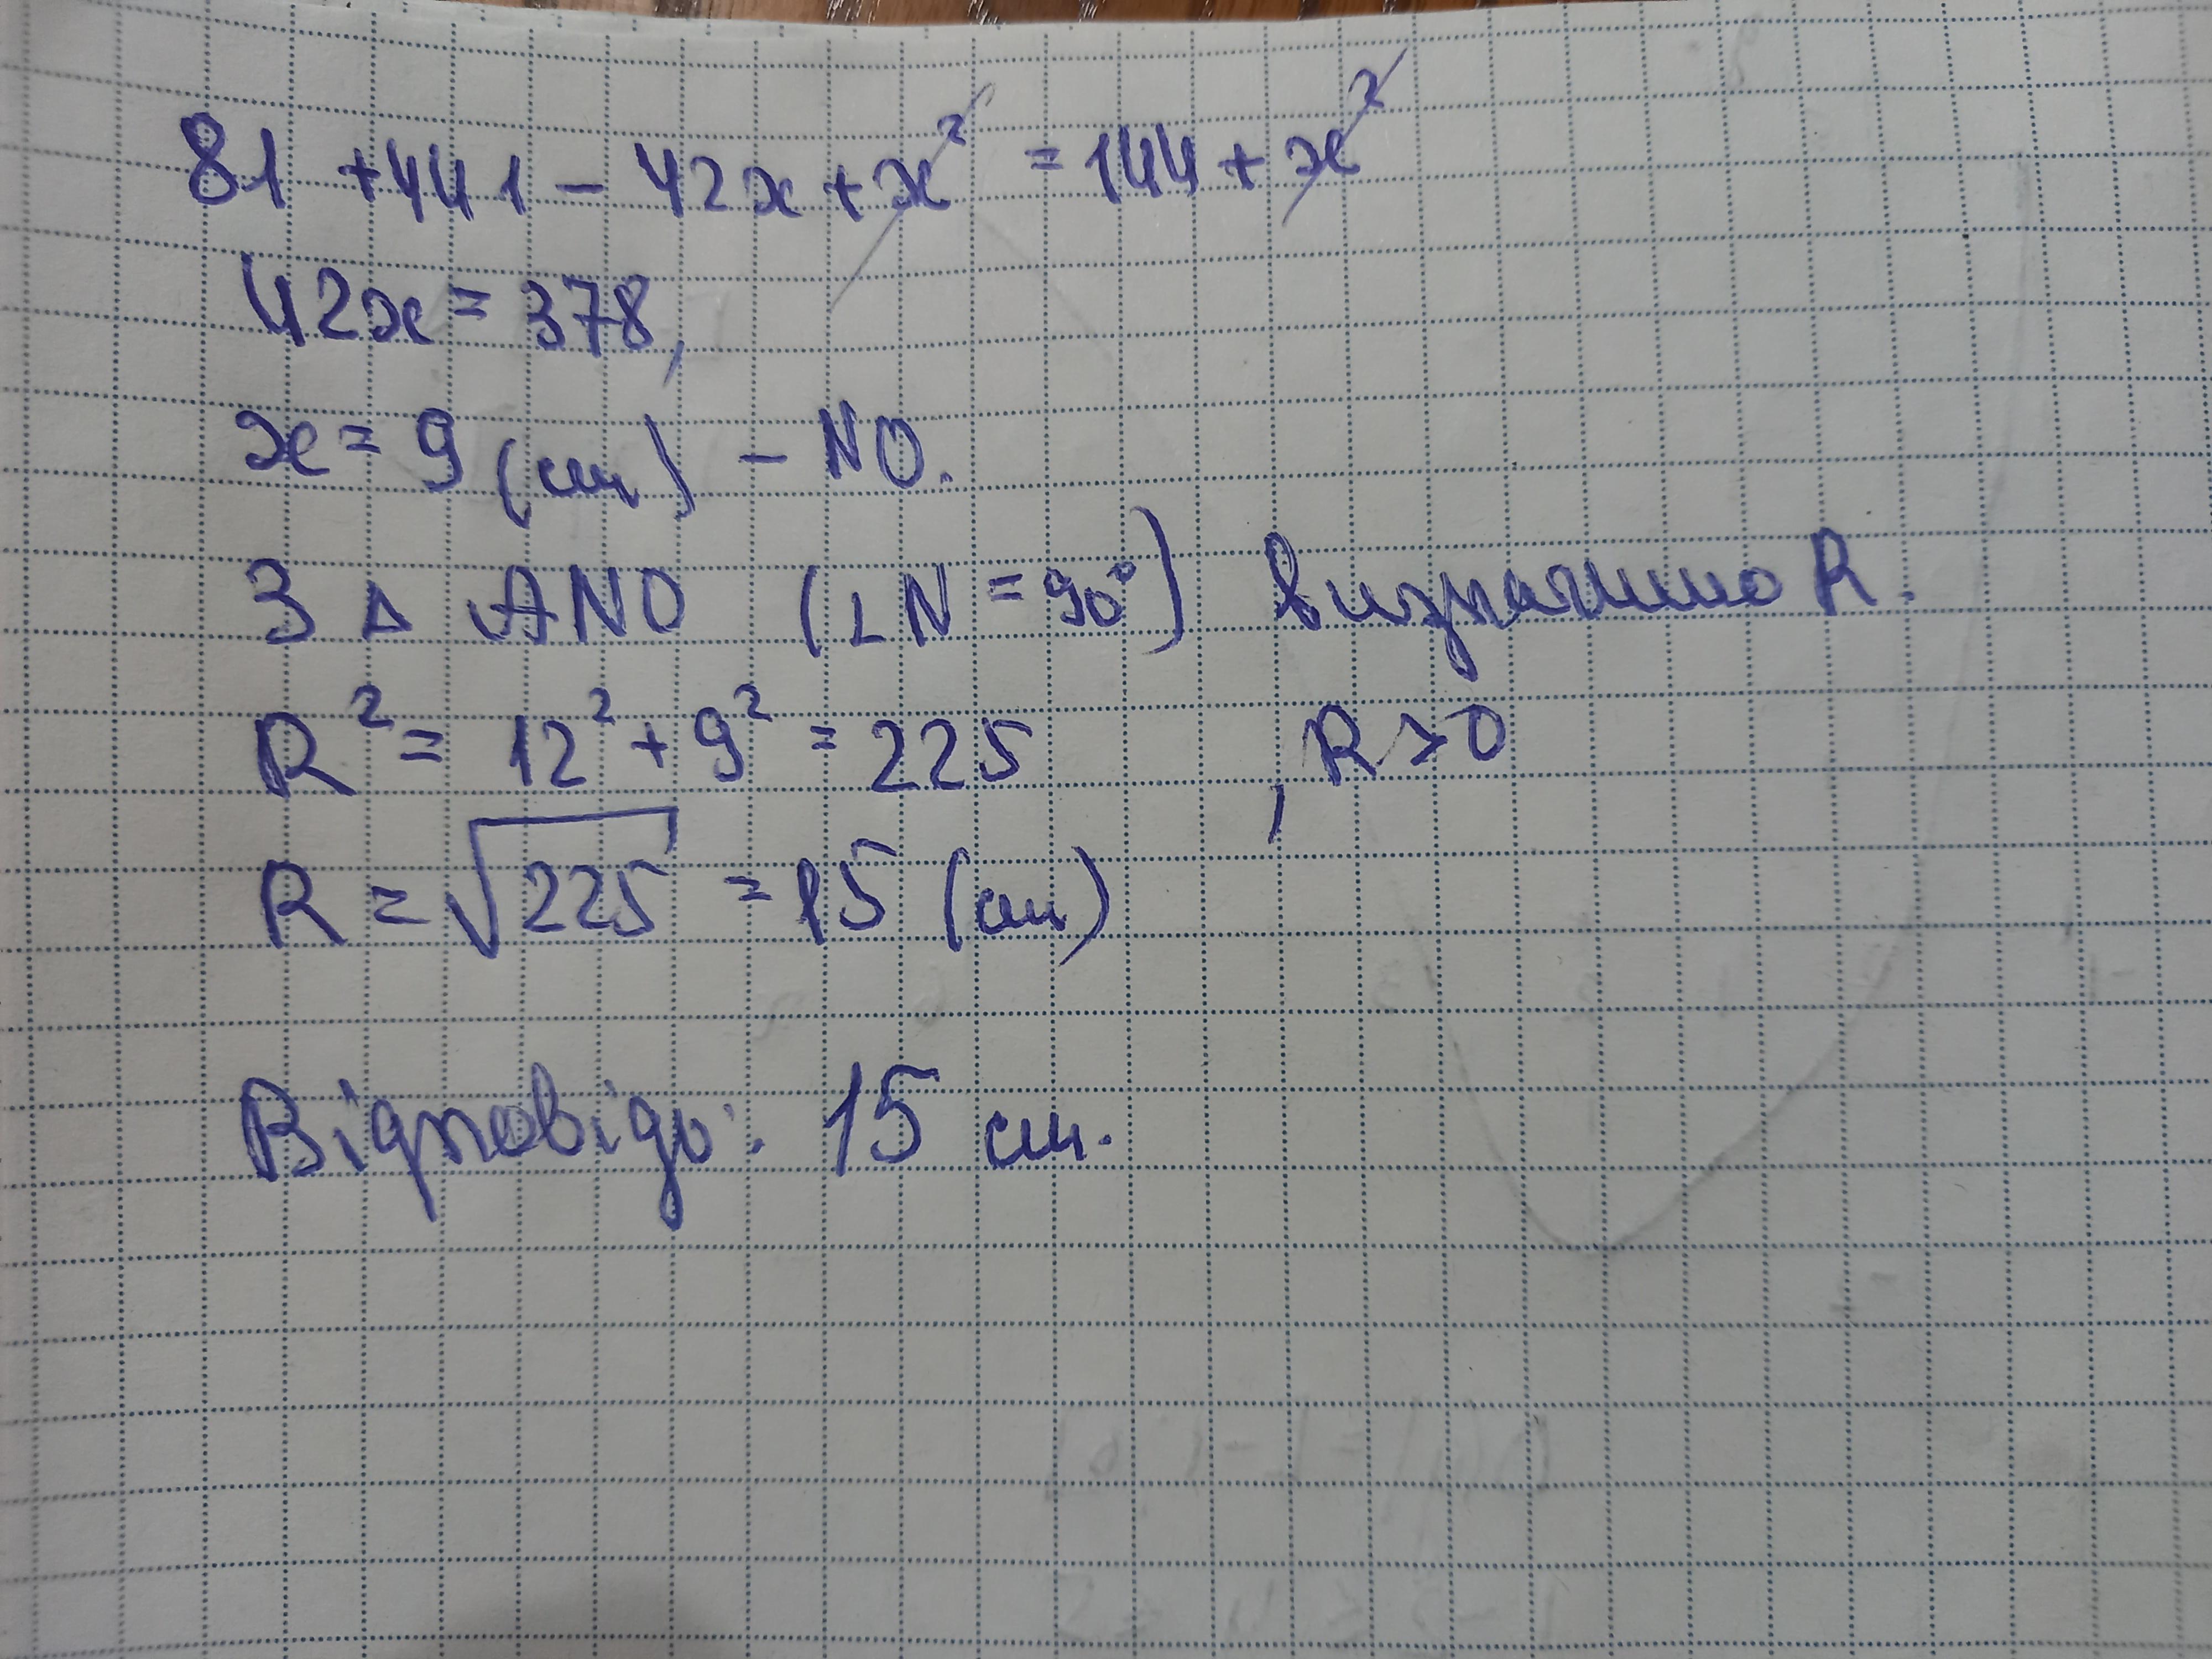 81 + 441 - 42x + x² = 144 + x²
42x = 378,
x = 9 (см) - NO.
З Δ ANO (∠N = 90°) визначимо R.
R² = 12² + 9² = 225 , R > 0
R = √225 = 15 (см)
Відповідь: 15 см.